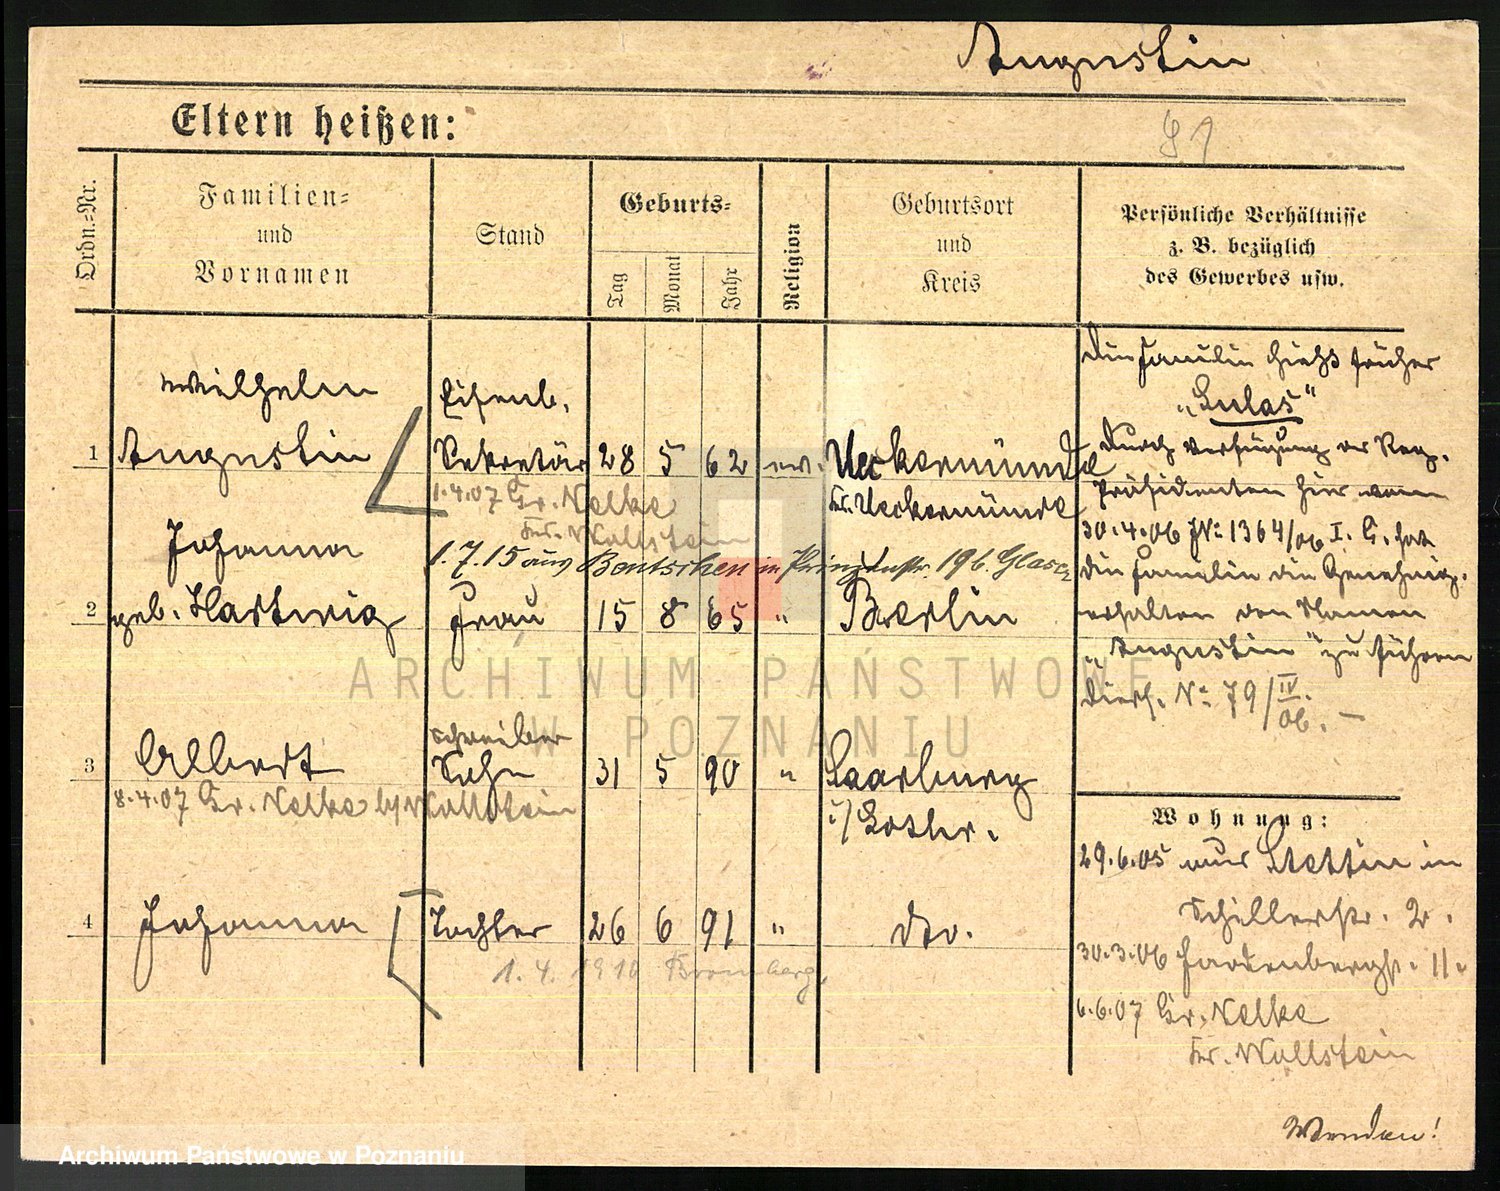 Augustin
Eltern heißen:
Ordn.-Nr.
Familien-
und
Vornamen
Stand
Geburts-
Tag
Monat
Jahr
Religion
Geburtsort
und
Kreis
Persönliche Verhältnisse
z. B. bezüglich
des Gewerbes usw.
Wilhelm
Eisenb.
1 Augustin Sekretär 28 5 62 ev. Ueckermünde
1.4.07 Gr. Nelke
Kr. Ueckermünde
Kr. Wollstein
Johanna
1.7.15 aus Bentschen in Prinzenstr. 196. Glasez
2 geb. Hartwig Frau 15 8 65 " Berlin
Schreiber
3 Albert Sohn 31 5 90 " Saarburg
8.4.07 Gr. Nelke b/Wollstein
i/Lothr.
4 Johanna Tochter 26 6 91 " dto.
1.4.1910 Bromberg.
Die Familie hieß früher
„Lulas"
Durch Verfügung des Reg.
Präsidenten hier vom
30.4.06 JNo 1364/06 I. G. hat
die Familie die Genehmig.
erhalten den Namen
„Augustin" zu führen
Diess. No 79/IV.
06. –
Wohnung:
29.6.05 aus Stettin in
Schillerstr. 2.
30.3.06 Hardenbergstr. 11.
6.6.07 Gr. Nelke
Kr. Wollstein
Wenden!
ARCHIWUM PAŃSTWOWE
W POZNANIU
Archiwum Państwowe w Poznaniu